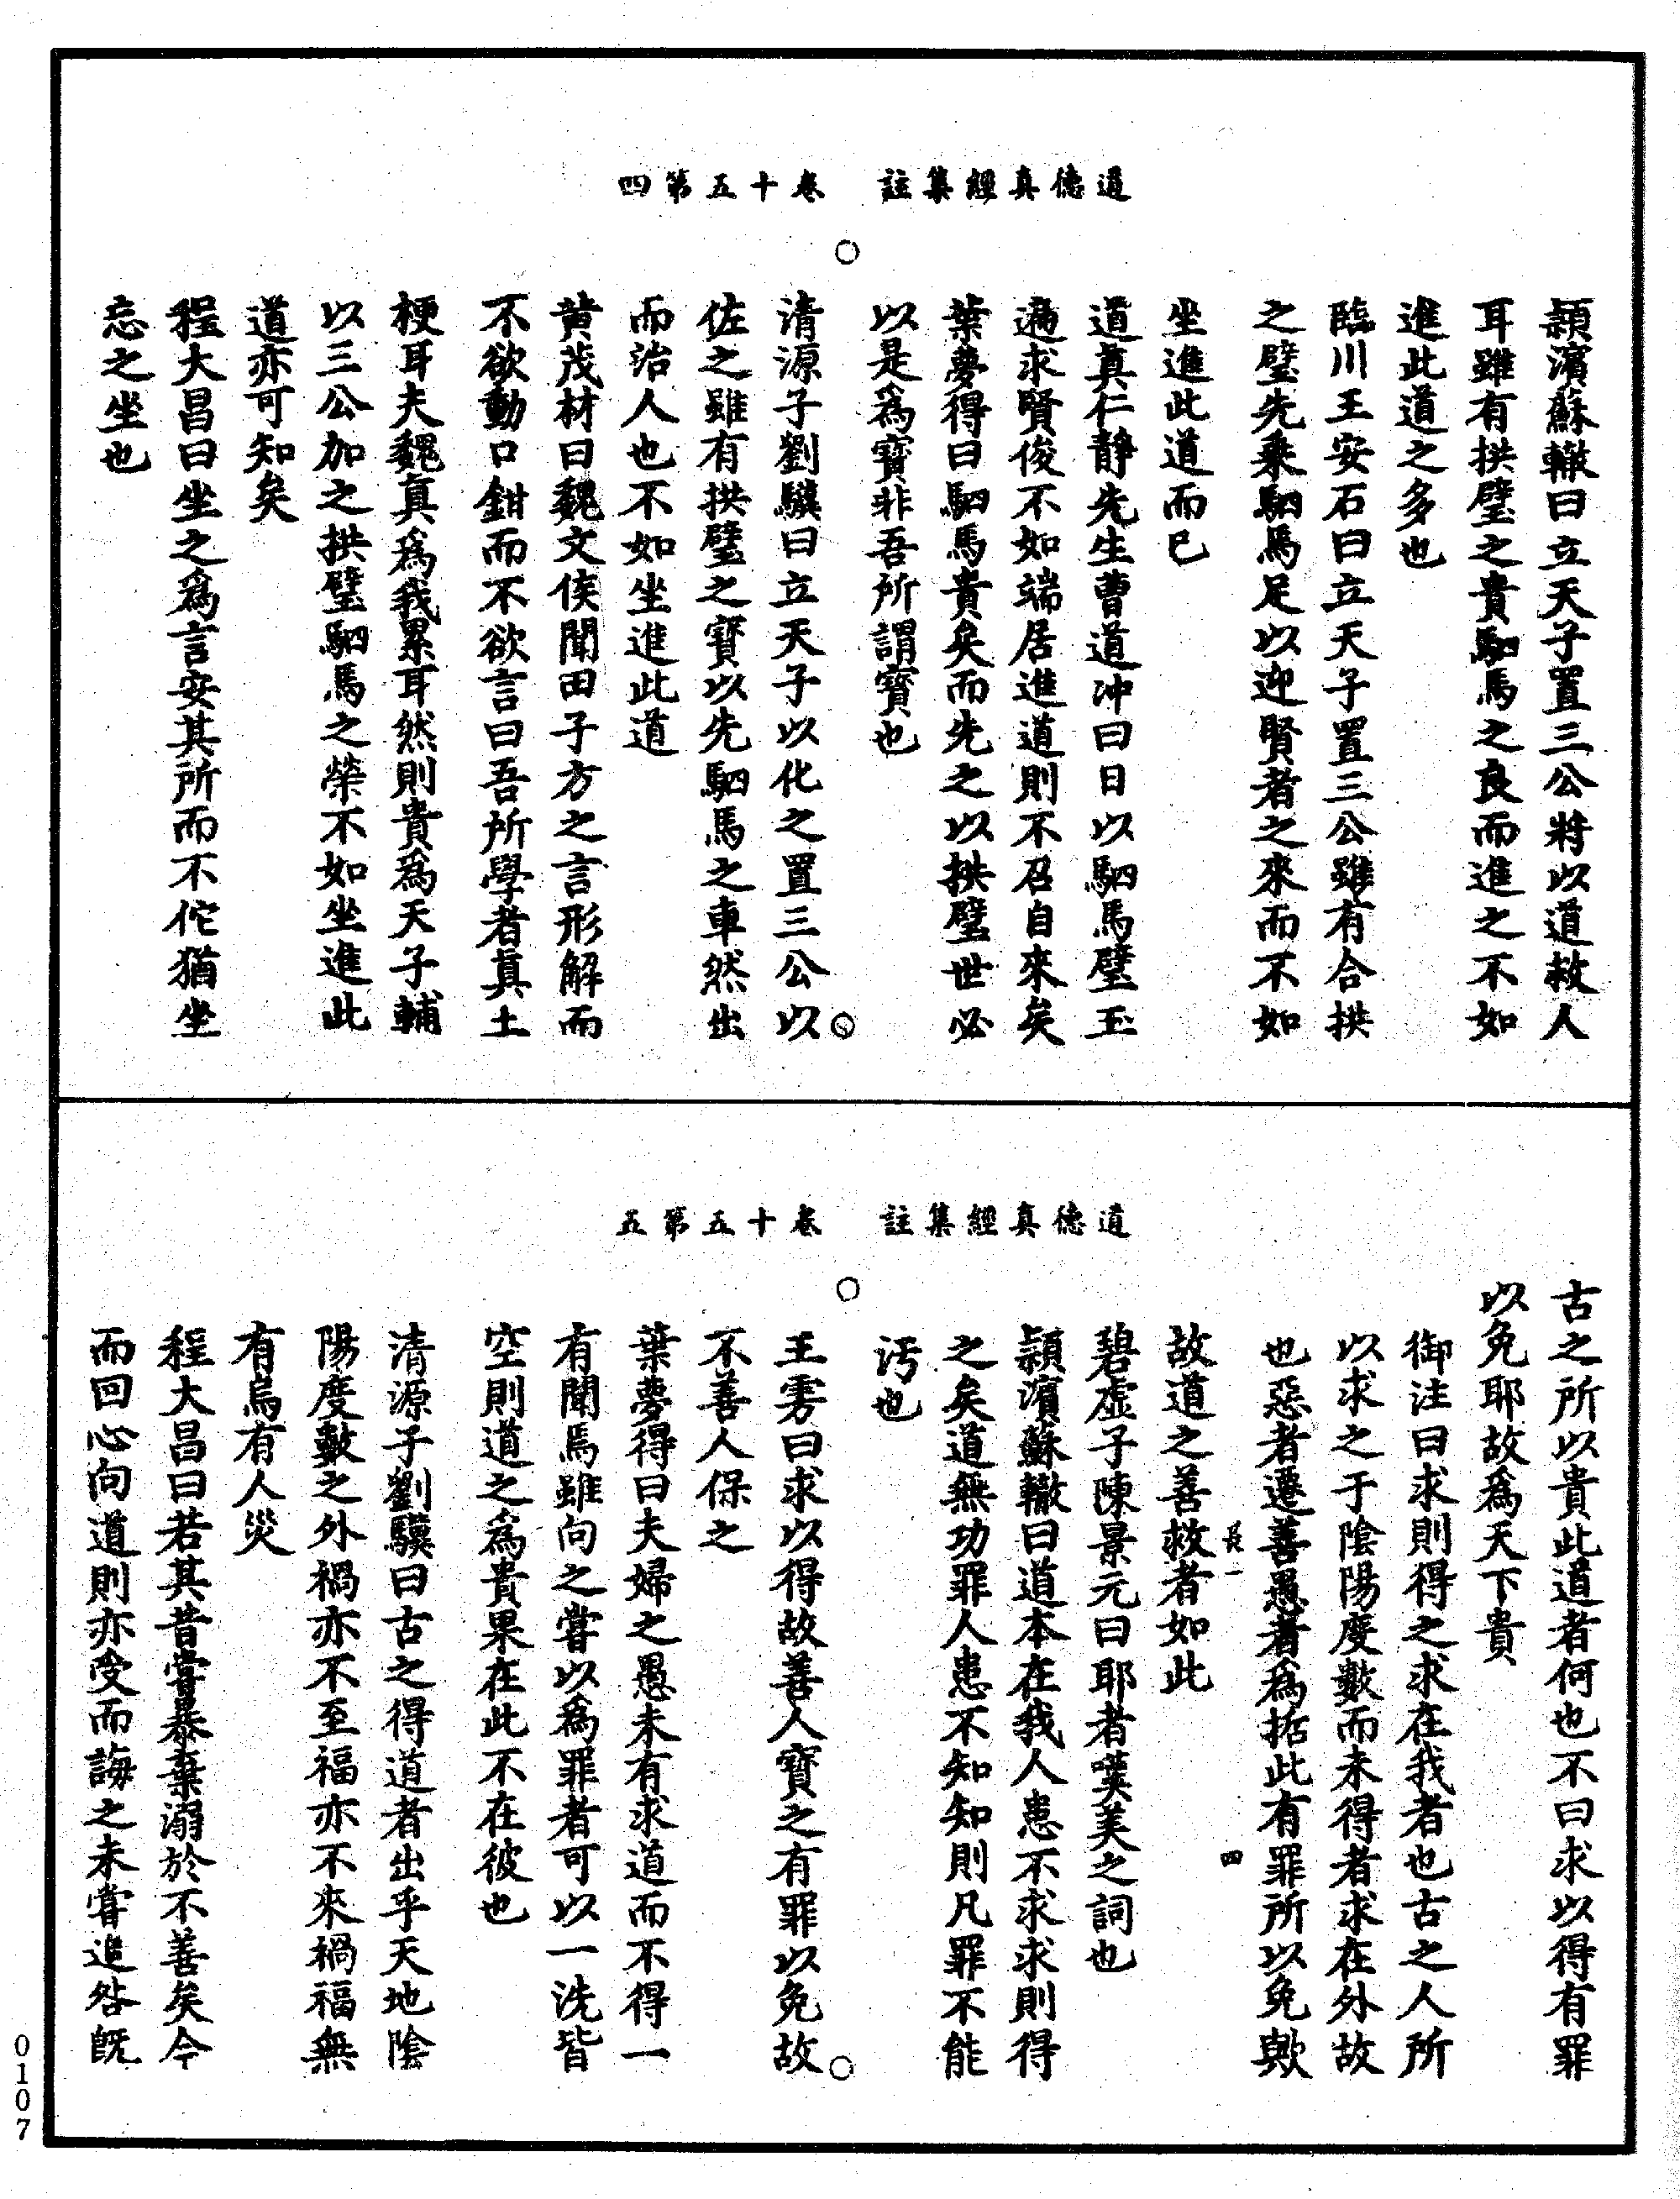 道德真經集註　卷十五第四
潁濱蘇轍曰立天子置三公將以道救人
耳雖有拱璧之貴駟馬之良而進之不如
進此道之多也
臨川王安石曰立天子置三公雖有合拱
之璧先乘駟馬足以迎賢者之來而不如
坐進此道而已
道真仁靜先生曹道冲曰日以駟馬璧玉
遍求賢俊不如端居進道則不召自來矣
葉夢得曰駟馬貴矣而先之以拱璧世必
以是爲寶非吾所謂寶也
清源子劉驥曰立天子以化之置三公以
佐之雖有拱璧之寶以先駟馬之車然出
而治人也不如坐進此道
黃茂材曰魏文侯聞田子方之言形解而
不欲動口鉗而不欲言曰吾所學者真土
梗耳夫魏真爲我累耳然則貴爲天子輔
以三公加之拱璧駟馬之榮不如坐進此
道亦可知矣
程大昌曰坐之爲言安其所而不佗猶坐
忘之坐也
道德真經集註　卷十五第五
古之所以貴此道者何也不曰求以得有罪
以免耶故爲天下貴
御注曰求則得之求在我者也古之人所
以求之于陰陽度數而未得者求在外故
也惡者遷善愚者爲括此有罪所以免歟
長一　四
故道之善救者如此
碧虛子陳景元曰耶者嘆美之詞也
潁濱蘇轍曰道本在我人患不求求則得
之矣道無功罪人患不知知則凡罪不能
汚也
王雱曰求以得故善人寶之有罪以免故
不善人保之
葉夢得曰夫婦之愚未有求道而不得一
有聞焉雖向之嘗以爲罪者可以一洗皆
空則道之爲貴果在此不在彼也
清源子劉驥曰古之得道者出乎天地陰
陽度數之外禍亦不至福亦不來禍福無
有烏有人災
程大昌曰若其昔嘗暴棄溺於不善矣今
而回心向道則亦受而誨之未嘗追咎旣
0107